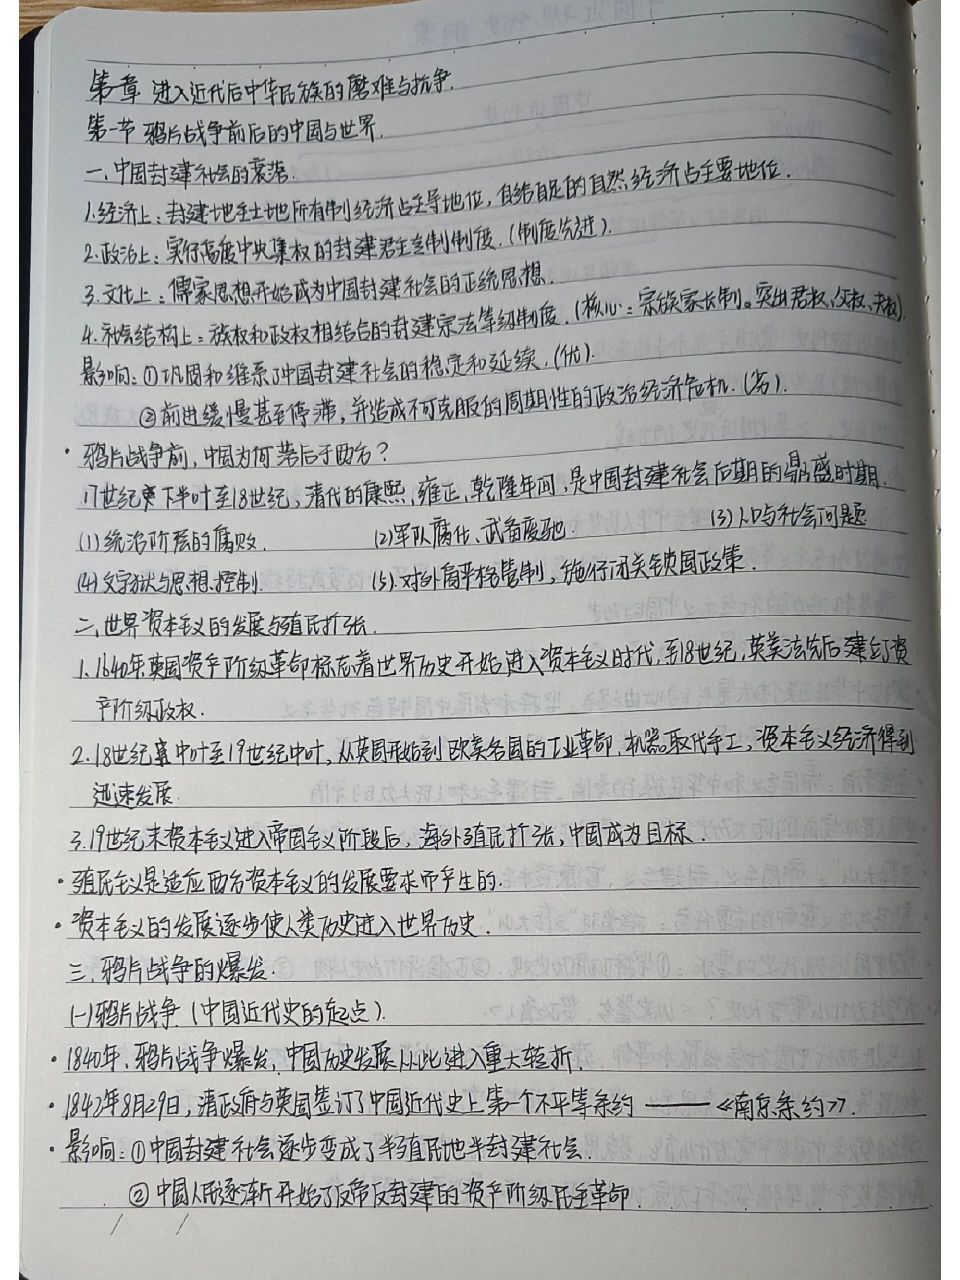 第一章 进入近代后中华民族的磨难与抗争.
第一节 鸦片战争前后的中国与世界.
一、中国封建社会的衰落.
1.经济上：封建地主土地所有制经济占主导地位，自给自足的自然经济占主要地位.
2.政治上：实行高度中央集权的封建君主专制制度.(制度先进).
3.文化上：儒家思想开始成为中国封建社会的正统思想.
4.社会结构上：族权和政权相结合的封建宗法等级制度.(核心：宗族家长制。突出君权、父权、夫权)
影响：①巩固和维系了中国封建社会的稳定和延续.(优).
②前进缓慢甚至停滞，并造成不可克服的周期性的政治经济危机.(劣).
·鸦片战争前，中国为何落后于西方？
17世纪下半叶至18世纪，清代的康熙,雍正,乾隆年间，是中国封建社会后期的鼎盛时期.
(1)统治阶层的腐败. (2)军队腐化、武备废驰. (3)人口与社会问题
(4)文字狱与思想控制. (5).对外严格管制，施行闭关锁国政策.
二、世界资本主义的发展与殖民扩张.
1.1640年英国资产阶级革命标志着世界历史开始进入资本主义时代,至18世纪,英美法先后建立了资
产阶级政权.
2.18世纪中叶至19世纪中叶，从英国开始到欧美各国的工业革命,机器取代手工，资本主义经济得到
迅速发展.
3.19世纪末资本主义进入帝国主义阶段后，海外殖民扩张，中国成为目标.
·殖民主义是适应西方资本主义的发展要求而产生的.
·资本主义的发展逐步使人类历史进入世界历史.
三.鸦片战争的爆发.
(一)鸦片战争(中国近代史的起点).
·1840年，鸦片战争爆发，中国历史发展从此进入重大转折.
·1842年8月29日，清政府与英国签订了中国近代史上第一个不平等条约——《南京条约》.
·影响：①中国封建社会逐步变成了半殖民地半封建社会.
②中国人民逐渐开始了反帝反封建的资产阶级民主革命.